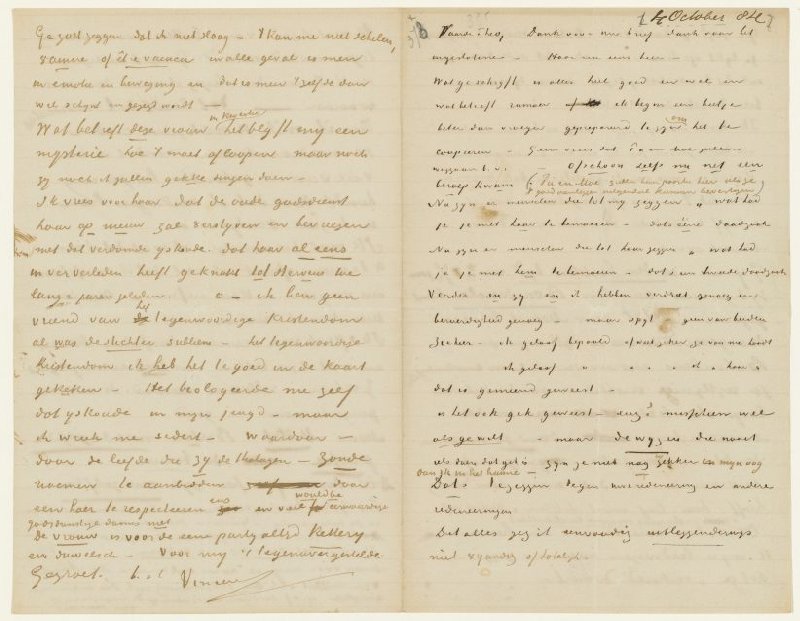 Ge zoudt zeggen dat ik niet slaag – 't kan me niet schelen,
vaincre of être vaincu in alle geval is men
in emotie en beweging en dat is meer 't zelfde dan
wel schijnt en gezegd wordt –
Wat betreft deze vrouw het blijft mij een
mysterie hoe 't moet afloopen maar noch
zij noch ik zullen gekke dingen doen –
Ik vrees voor haar dat de oude godsdienst
haar op nieuw zal verstijven en bevriezen
met dat verdomde yskoude. dat haar al eens
in ver verleden heeft geknakt tot stervens toe
lang jaren geleden. o – ik ben geen
vriend van het tegenwoordige Kristendom
al was de stichter subliem – het tegenwoordige
Kristendom ik heb het te goed in de kaart
gekeken – Het biologeerde me zelf
dat yskoude in mijn jeugd – maar
ik wreek me sedert – Waardoor –
door de liefde die zij de theologen – zonde
noemen te aanbidden door
een hoer te respecteeren enz en veel would be eerwaardige
godsdienstige dames niet
De vrouw is voor de eene partij altijd Ketterij
en duivelsch – Voor mij 't tegenovergestelde.
Gegroet. t. à t. Vincent
4 October 84
Waarde Theo, Dank voor uw brief dank voor het
ingeslotene – Hoor nu eens hier –
Wat ge schrijft is alles heel goed en wel en
wat betreft ik begin een beetje
beter dan vroeger geprepareerd te zijn om het te
coupeeren –
– ofschoon zelfs nu net een
beroep kwam (Pa en Moe zullen hun positie hier
goed menschen zelfs kunnen bevestigen)
Nu zijn er menschen die tot mij zeggen „wat had
je je met haar te bemoeien – dat is een daadzaak
Nu zijn er menschen die tot haar zeggen „wat had
je je met hem te bemoeien – dat is een tweede daadzaak
Verder en zij en ik hebben verdriet genoeg en
beroerdigheid genoeg – maar spijt – geen van beiden
Ziehier – ik geloof bepaald of weet zeker ze van me houdt
ik geloof " " " ik " haar "
dat is gemeend geweest –
is het ook gek geweest – enz? misschien wel
als ge wilt – maar de wijzen die nooit
iets doen dat gek is zijn ze niet nog gekker in mijn oog
dan ik in het hunne –
Dat is te zeggen tegen uwe redeneering en andere
redeneeringen
Dat alles zeg ik eenvoudig uitleggenderwijs
niet vijandig of